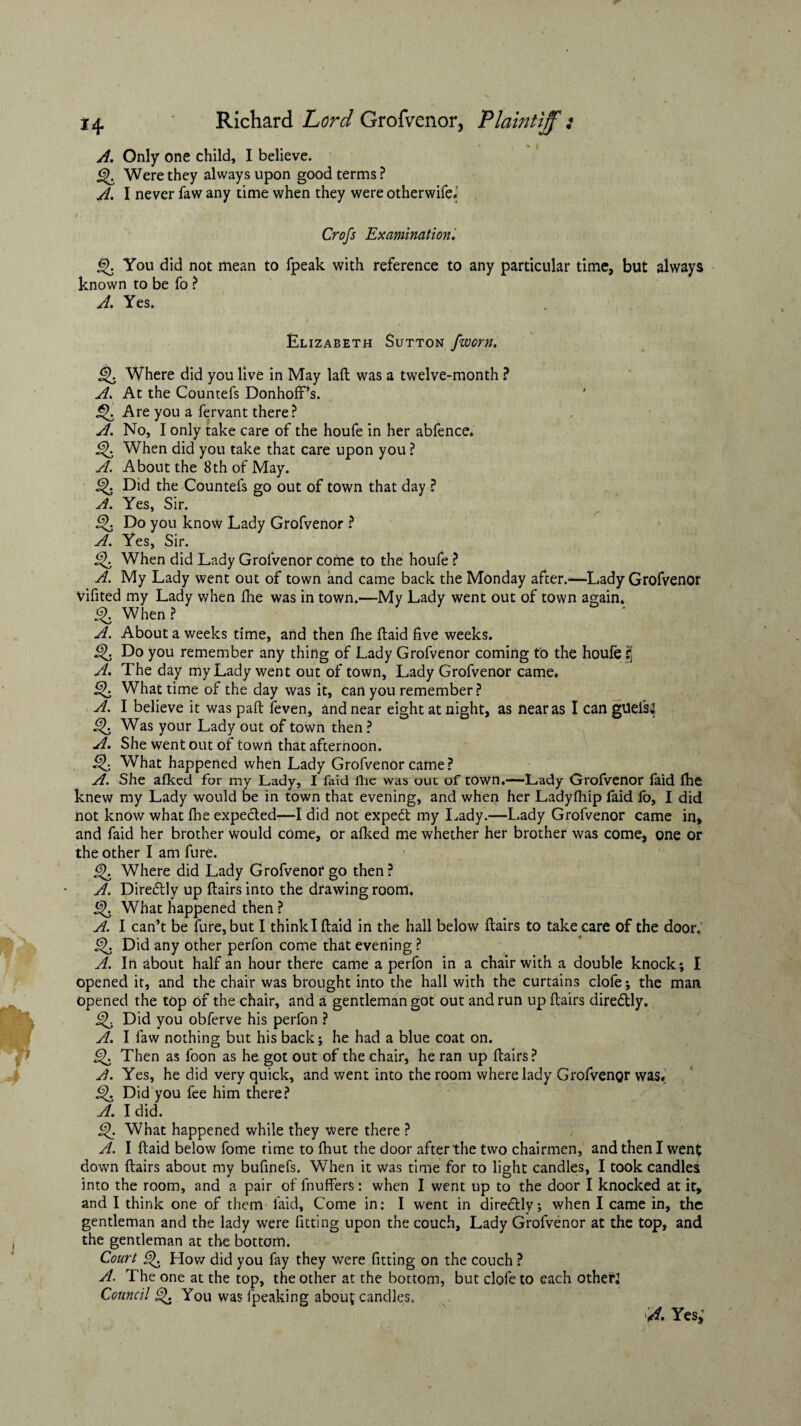 14 Richard Lord Grofvenor, Plaintiff :
A. Only one child, I believe.
Q. Were they always upon good terms ?
A. I never ſaw any time when they were otherwiſe.
Croſs Examination.
Q. You did not mean to ſpeak with reference to any particular time, but always
known to be ſo ?
A. Yes.
Elizabeth Sutton ſworn.
Q. Where did you live in May laſt was a twelve-month ?
A. At the Counteſs Donhoff's.
Q. Are you a ſervant there ?
A. No, I only take care of the houſe in her abſence.
Q. When did you take that care upon you ?
A. About the 8th of May.
Q. Did the Counteſs go out of town that day ?
A. Yes, Sir.
Q. Do you know Lady Groſvenor ?
A. Yes, Sir.
Q. When did Lady Groſvenor come to the houſe ?
A. My Lady went out of town and came back the Monday after.—Lady Groſvenor
viſited my Lady when ſhe was in town.—My Lady went out of town again.
Q. When ?
A. About a weeks time, and then ſhe ſtaid five weeks.
Q. Do you remember any thing of Lady Groſvenor coming to the houſe ?
A. The day my Lady went out of town, Lady Groſvenor came.
Q. What time of the day was it, can you remember ?
A. I believe it was paſt ſeven, and near eight at night, as near as I can gueſs.
Q. Was your Lady out of town then ?
A. She went out of town that afternoon.
Q. What happened when Lady Groſvenor came ?
A. She aſked for my Lady, I ſaid ſhe was out of town.—Lady Groſvenor ſaid ſhe
knew my Lady would be in town that evening, and when her Ladyſhip ſaid ſo, I did
not know what ſhe expected—I did not expect my Lady.—Lady Groſvenor came in,
and ſaid her brother would come, or aſked me whether her brother was come, one or
the other I am ſure.
Q. Where did Lady Groſvenor go then ?
A. Directly up ſtairs into the drawing room.
Q. What happened then ?
A. I can't be ſure, but I think I ſtaid in the hall below ſtairs to take care of the door.
Q. Did any other perſon come that evening ?
A. In about half an hour there came a perſon in a chair with a double knock; I
opened it, and the chair was brought into the hall with the curtains cloſe; the man
opened the top of the chair, and a gentleman got out and run up ſtairs directly.
Q. Did you obſerve his perſon ?
A. I ſaw nothing but his back; he had a blue coat on.
Q. Then as ſoon as he got out of the chair, he ran up ſtairs ?
A. Yes, he did very quick, and went into the room where lady Groſvenor was.
Q. Did you ſee him there ?
A. I did.
Q. What happened while they were there ?
A. I ſtaid below ſome time to ſhut the door after the two chairmen, and then I went
down ſtairs about my buſineſs. When it was time for to light candles, I took candles
into the room, and a pair of ſnuffers: when I went up to the door I knocked at it,
and I think one of them ſaid, Come in: I went in directly; when I came in, the
gentleman and the lady were ſitting upon the couch, Lady Groſvenor at the top, and
the gentleman at the bottom.
Court Q. How did you ſay they were ſitting on the couch ?
A. The one at the top, the other at the bottom, but cloſe to each other.
Council Q. You was ſpeaking about candles.
A. Yes,